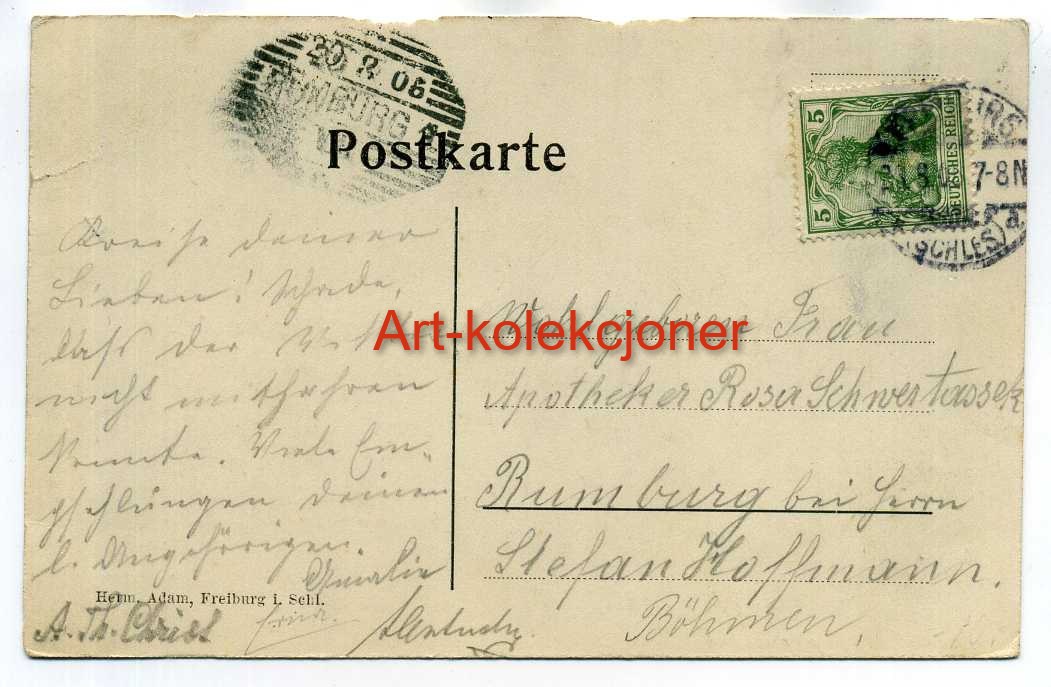 20.8.06
RUMBURG
Postkarte
5
5
DEUTSCHES REICH
7-8N
(SCHLES)
deiner
Lieben! Schade,
daß der
nicht mitfahren
konnte. Viele Em-
pfehlungen deinen
l. Angehörigen.
Amalie
Art-kolekcjoner
Wohlgeboren Frau
Apotheker Rosa Schwertassek
Rumburg bei Herrn
Stefan Hoffmann.
Böhmen.
Herm. Adam, Freiburg i. Schl.
A. Th. Christ